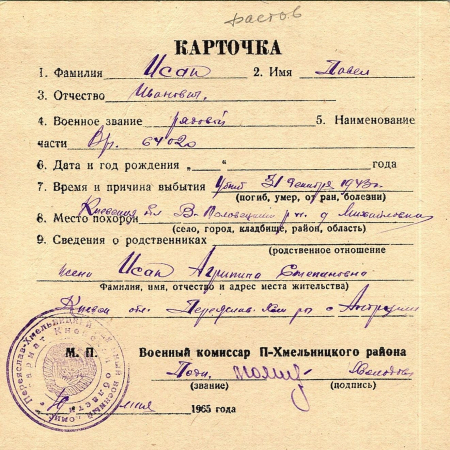 фастов
КАРТОЧКА
1. Фамилия Исап 2. Имя Павел
3. Отчество Иванович.
4. Военное звание рядовой 5. Наименование
части Вр. 64020
6. Дата и год рождения „ “ года
7. Время и причина выбытия Убит 31 декабря 1943г.
(погиб, умер, от ран, болезни)
8. Место похорон Киевская обл В-Половецкий р-н. д Михайловка
(село, город, кладбище, район, область)
9. Сведения о родственниках
(родственное отношение
жена Исап Агрипина Степановна
Фамилия, имя, отчество и адрес места жительства)
Киевск обл. Переяслав-Хм р-н с
М. П. Военный комиссар П-Хмельницкого района
Подп.
(звание) (подпись)
мая 1965 года